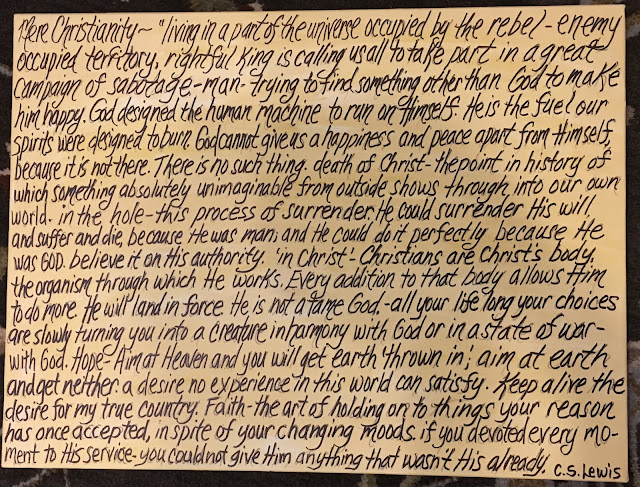 Mere Christianity~ "living in a part of the universe occupied by the rebel-enemy
occupied territory, rightful King is calling us all to take part in a great
campaign of sabotage-man-trying to find something other than God to make
him happy. God designed the human machine to run on Himself. He is the fuel our
spirits were designed to burn. God cannot give us a happiness and peace apart from Himself,
because it is not there. There is no such thing. death of Christ-the point in history of
which something absolutely unimaginable from outside shows through into our own
world. in the hole-this process of surrender. He could surrender His will,
and suffer and die, because He was man; and He could do it perfectly because He
was GOD. believe it on His authority. 'in Christ'-Christians are Christ's body,
the organism through which He works. Every addition to that body allows Him
to do more. He will land in force. He is not a tame God.-all your life long your choices
are slowly turning you into a creature in harmony with God or in a state of war-
with God. Hope-Aim at Heaven and you will get earth 'thrown in'; aim at earth
and get neither. a desire no experience in this world can satisfy. Keep alive the
desire for my true country. Faith-the art of holding on to things your reason
has once accepted, in spite of your changing moods. if you devoted every mo-
ment to His service-you could not give Him anything that wasn't His already.
C.S. Lewis